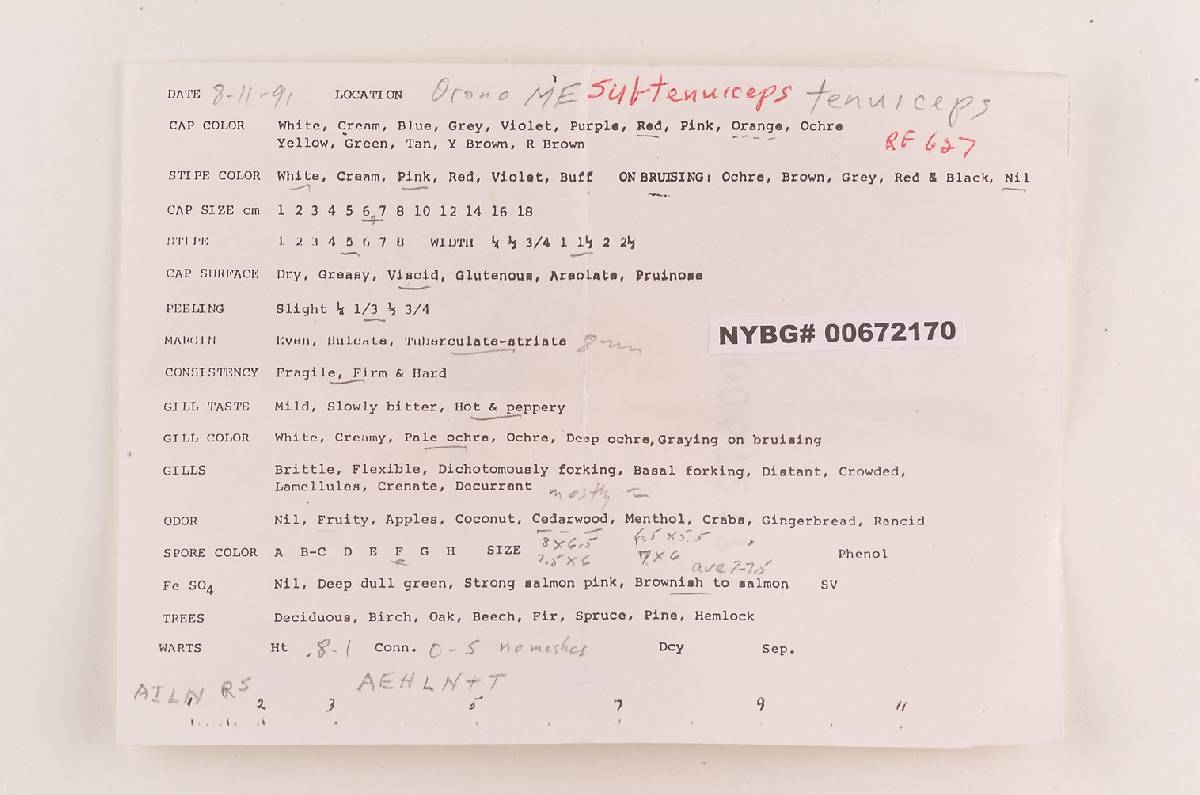 DATE 8-11-91 LOCATION Orono ME Subtenuiceps tenuiceps
CAP COLOR White, Cream, Blue, Grey, Violet, Purple, Red, Pink, Orange, Ochre
Yellow, Green, Tan, Y Brown, R Brown
RF 627
STIPE COLOR White, Cream, Pink, Red, Violet, Buff ON BRUISING: Ochre, Brown, Grey, Red & Black, Nil
CAP SIZE cm 1 2 3 4 5 6,7 8 10 12 14 16 18
STIPE 1 2 3 4 5 6 7 8 WIDTH ¼ ½ 3/4 1 1½ 2 2½
CAP SURFACE Dry, Greasy, Viscid, Glutenous, Areolate, Pruinose
PEELING Slight ¼ 1/3 ½ 3/4
NYBG# 00672170
MARGIN Even, Sulcate, Tuberculate-striate 8mm
CONSISTENCY Fragile, Firm & Hard
GILL TASTE Mild, Slowly bitter, Hot & peppery
GILL COLOR White, Creamy, Pale ochre, Ochre, Deep ochre, Graying on bruising
GILLS Brittle, Flexible, Dichotomously forking, Basal forking, Distant, Crowded,
Lamellules, Crenate, Decurrent mostly =
ODOR Nil, Fruity, Apples, Coconut, Cedarwood, Menthol, Crabs, Gingerbread, Rancid
8×6.5 6.5×5.5
SPORE COLOR A B-C D E F G H SIZE 7.5×6 7×6 Phenol
ave 7-7.5
Fe SO4 Nil, Deep dull green, Strong salmon pink, Brownish to salmon SV
TREES Deciduous, Birch, Oak, Beech, Fir, Spruce, Pine, Hemlock
WARTS Ht .8-1 Conn. 0-5 no meshes Dcy Sep.
AILN RS AEHLN+T
2 3 5 7 9 11